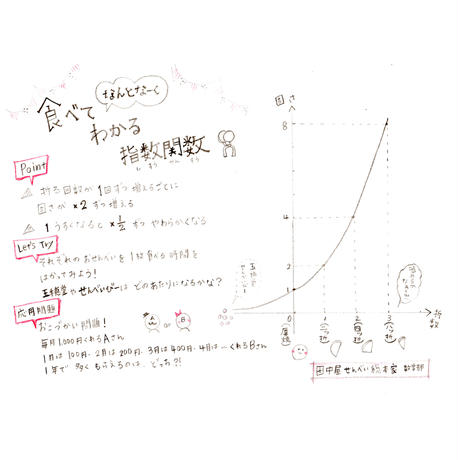 なんとなーく
食べて
わかる
指数関数
しすうかんすう
Point
折る回数が1回ずつ増えるごとに
固さが×2ずつ増える
1うすくなると×1/2ずつやわらかくなる
Let's Try
それぞれのおせんべいを1枚食べる時間を
はかってみよう!
五穂堂やせんべいびーはどのあたりになるかな?
応用問題
おこづかい問題!
A
or
B
毎月1,000円くれるAさん
1月は100円、2月は200円、3月は400円、4月は…くれるBさん
1年で多くもらえるのは、どっち?!
固さ
8
4
2
1
0
1
2
3
折数
田中屋せんべい総本家 数学部